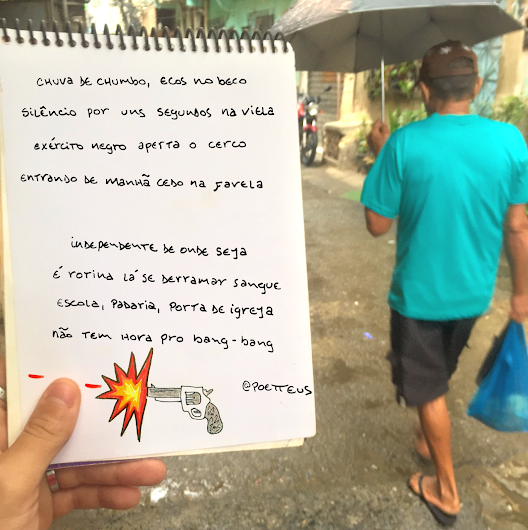 CHUVA DE CHUMBO, ECOS NO BECO
SILÊNCIO POR UNS SEGUNDOS NA VIELA
EXÉRCITO NEGRO APERTA O CERCO
ENTRANDO DE MANHÃ CEDO NA FAVELA
INDEPENDENTE DE ONDE SEJA
É ROTINA LÁ SE DERRAMAR SANGUE
ESCOLA, PADARIA, PORTA DE IGREJA
NÃO TEM HORA PRO BANG-BANG
@POETTEUS